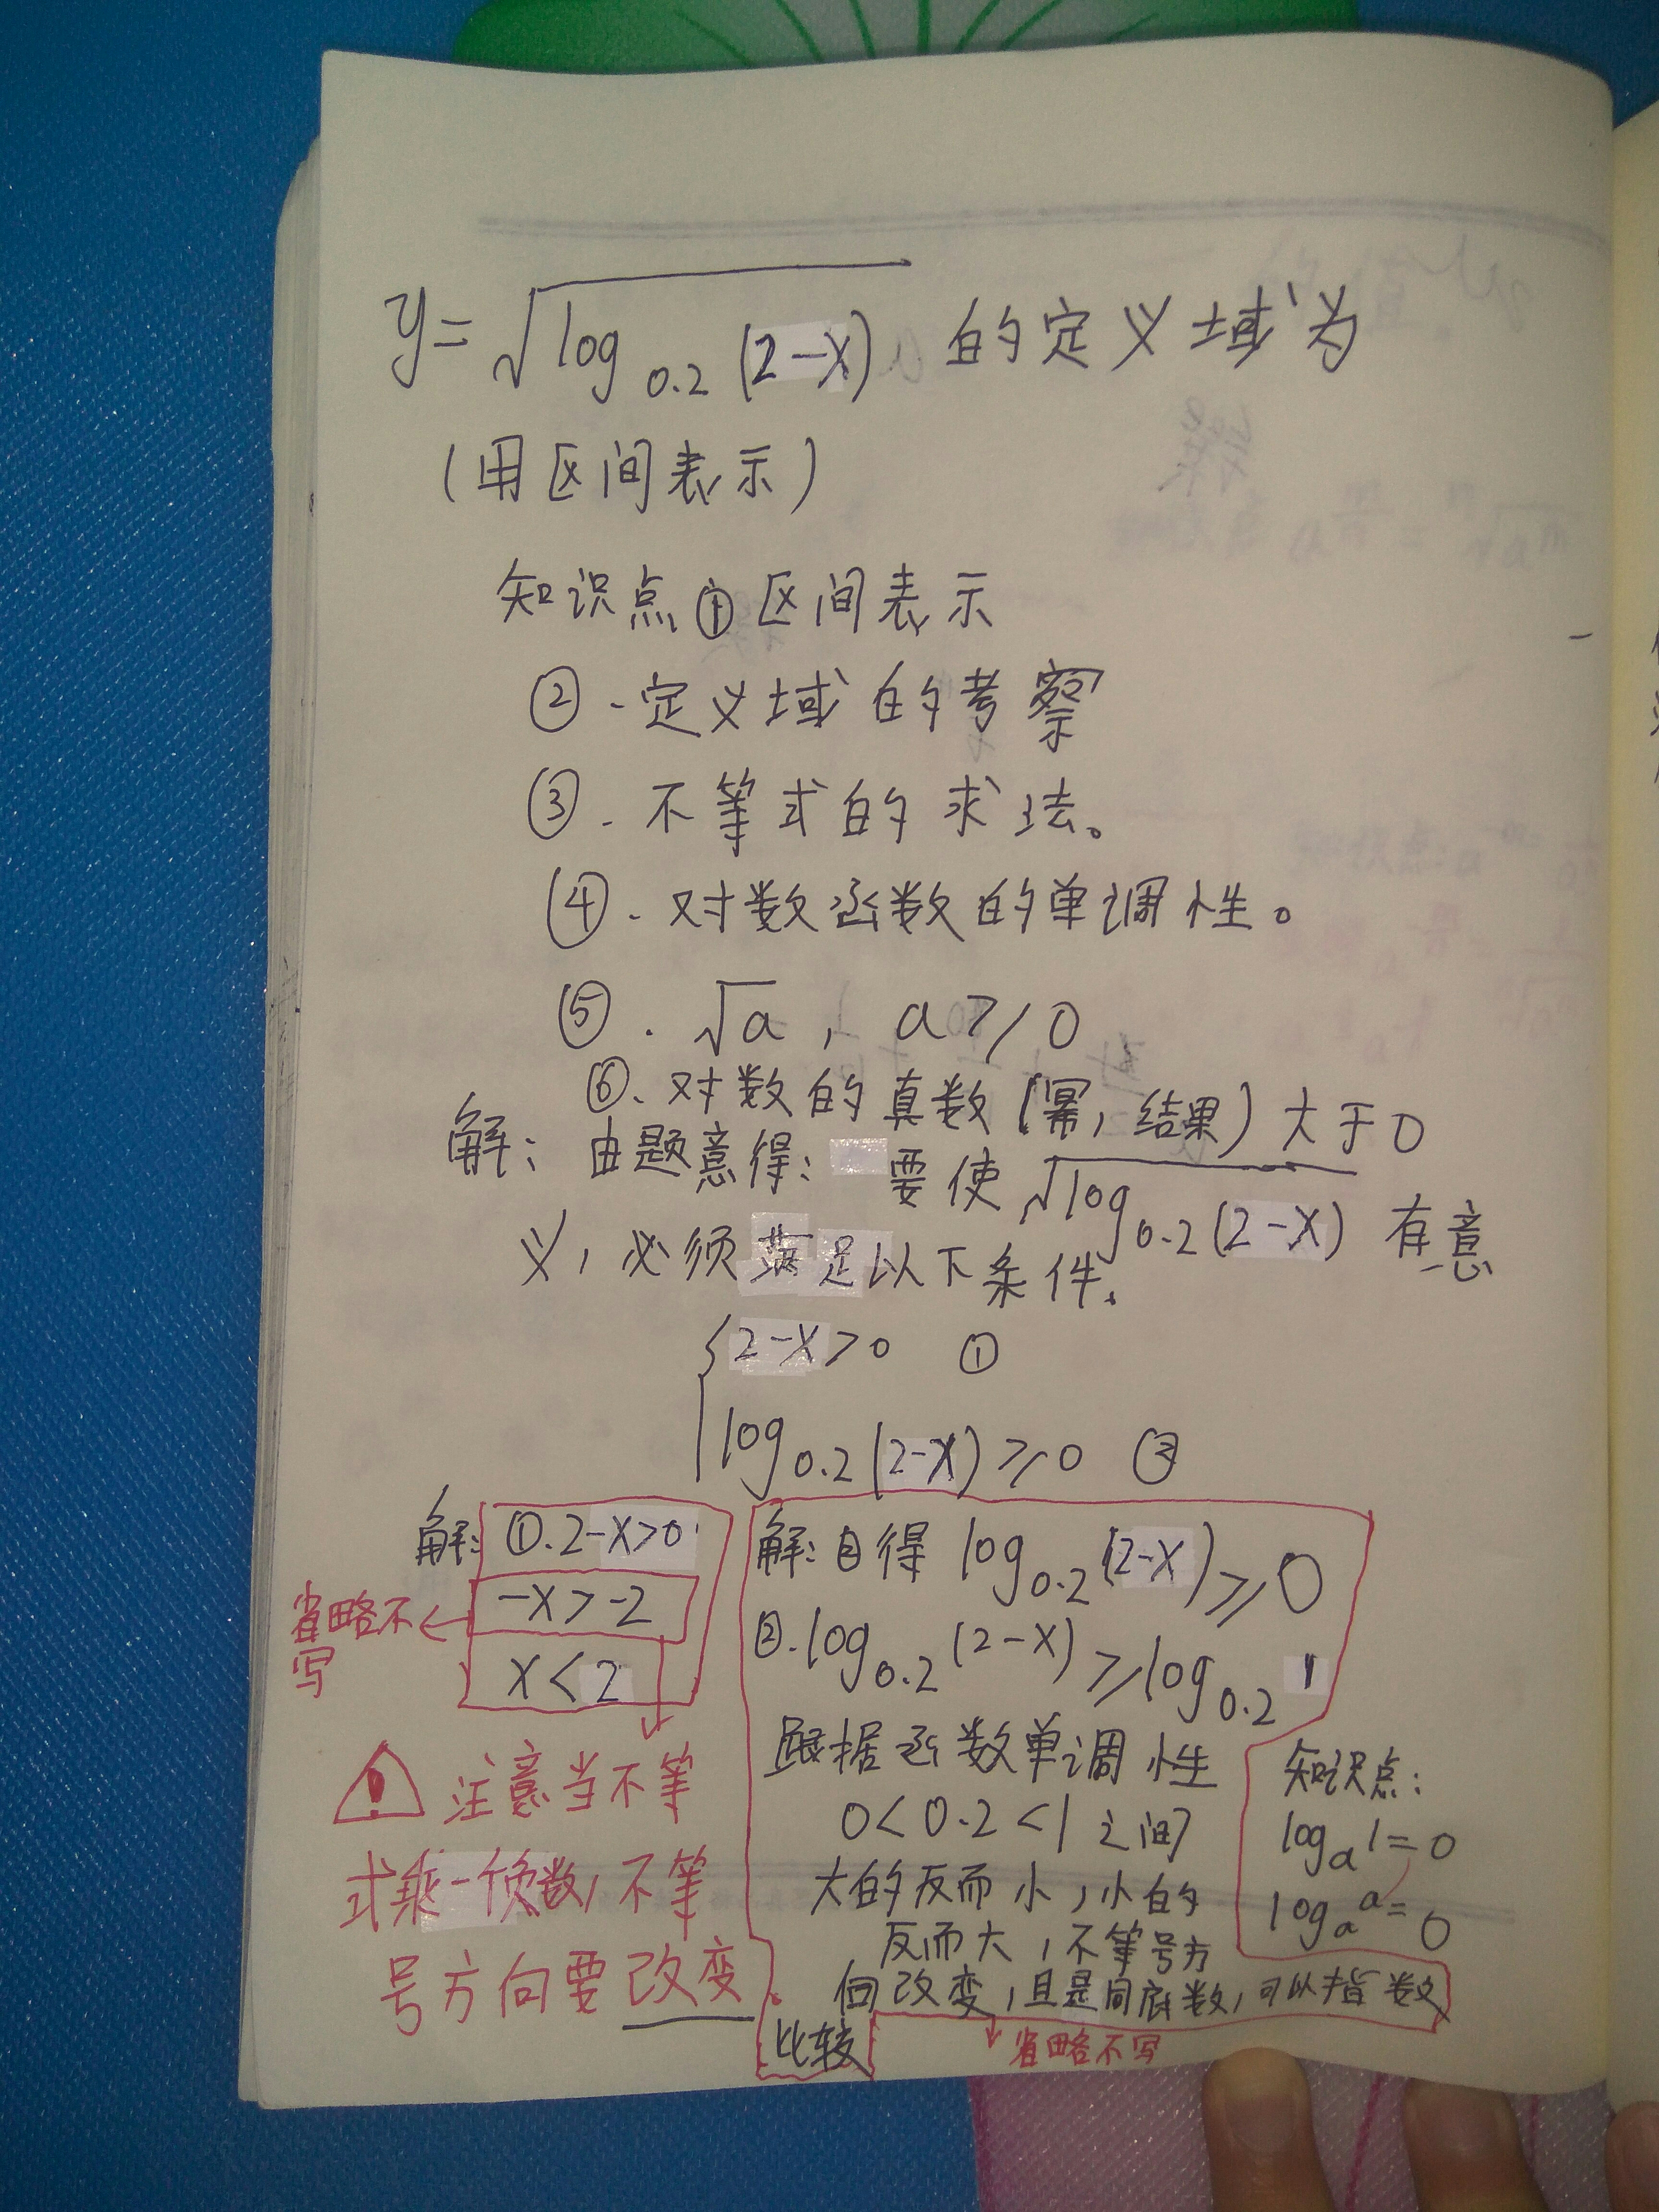 y=√log0.2(2-x) 的定义域为
(用区间表示)
知识点①区间表示
②.定义域的考察
③.不等式的求法。
④.对数函数的单调性。
⑤.√a, a≥0
⑥.对数的真数(幂,结果)大于0
解:由题意得: 要使√log0.2(2-x) 有意
义,必须满足以下条件.
{2-x>0 ①
log0.2(2-x)≥0 ②
解:①.2-x>0
-x>-2
省略不
写
x<2
注意当不等
式乘一个负数,不等
号方向要改变.
解:②得 log0.2(2-x)≥0
②.log0.2(2-x)≥log0.2 1
跟据函数单调性
0<0.2<1之间
大的反而小,小的
反而大,不等号方
向改变,且是同底数,可以指数
比较
省略不写
知识点:
loga1=0
logaa=0